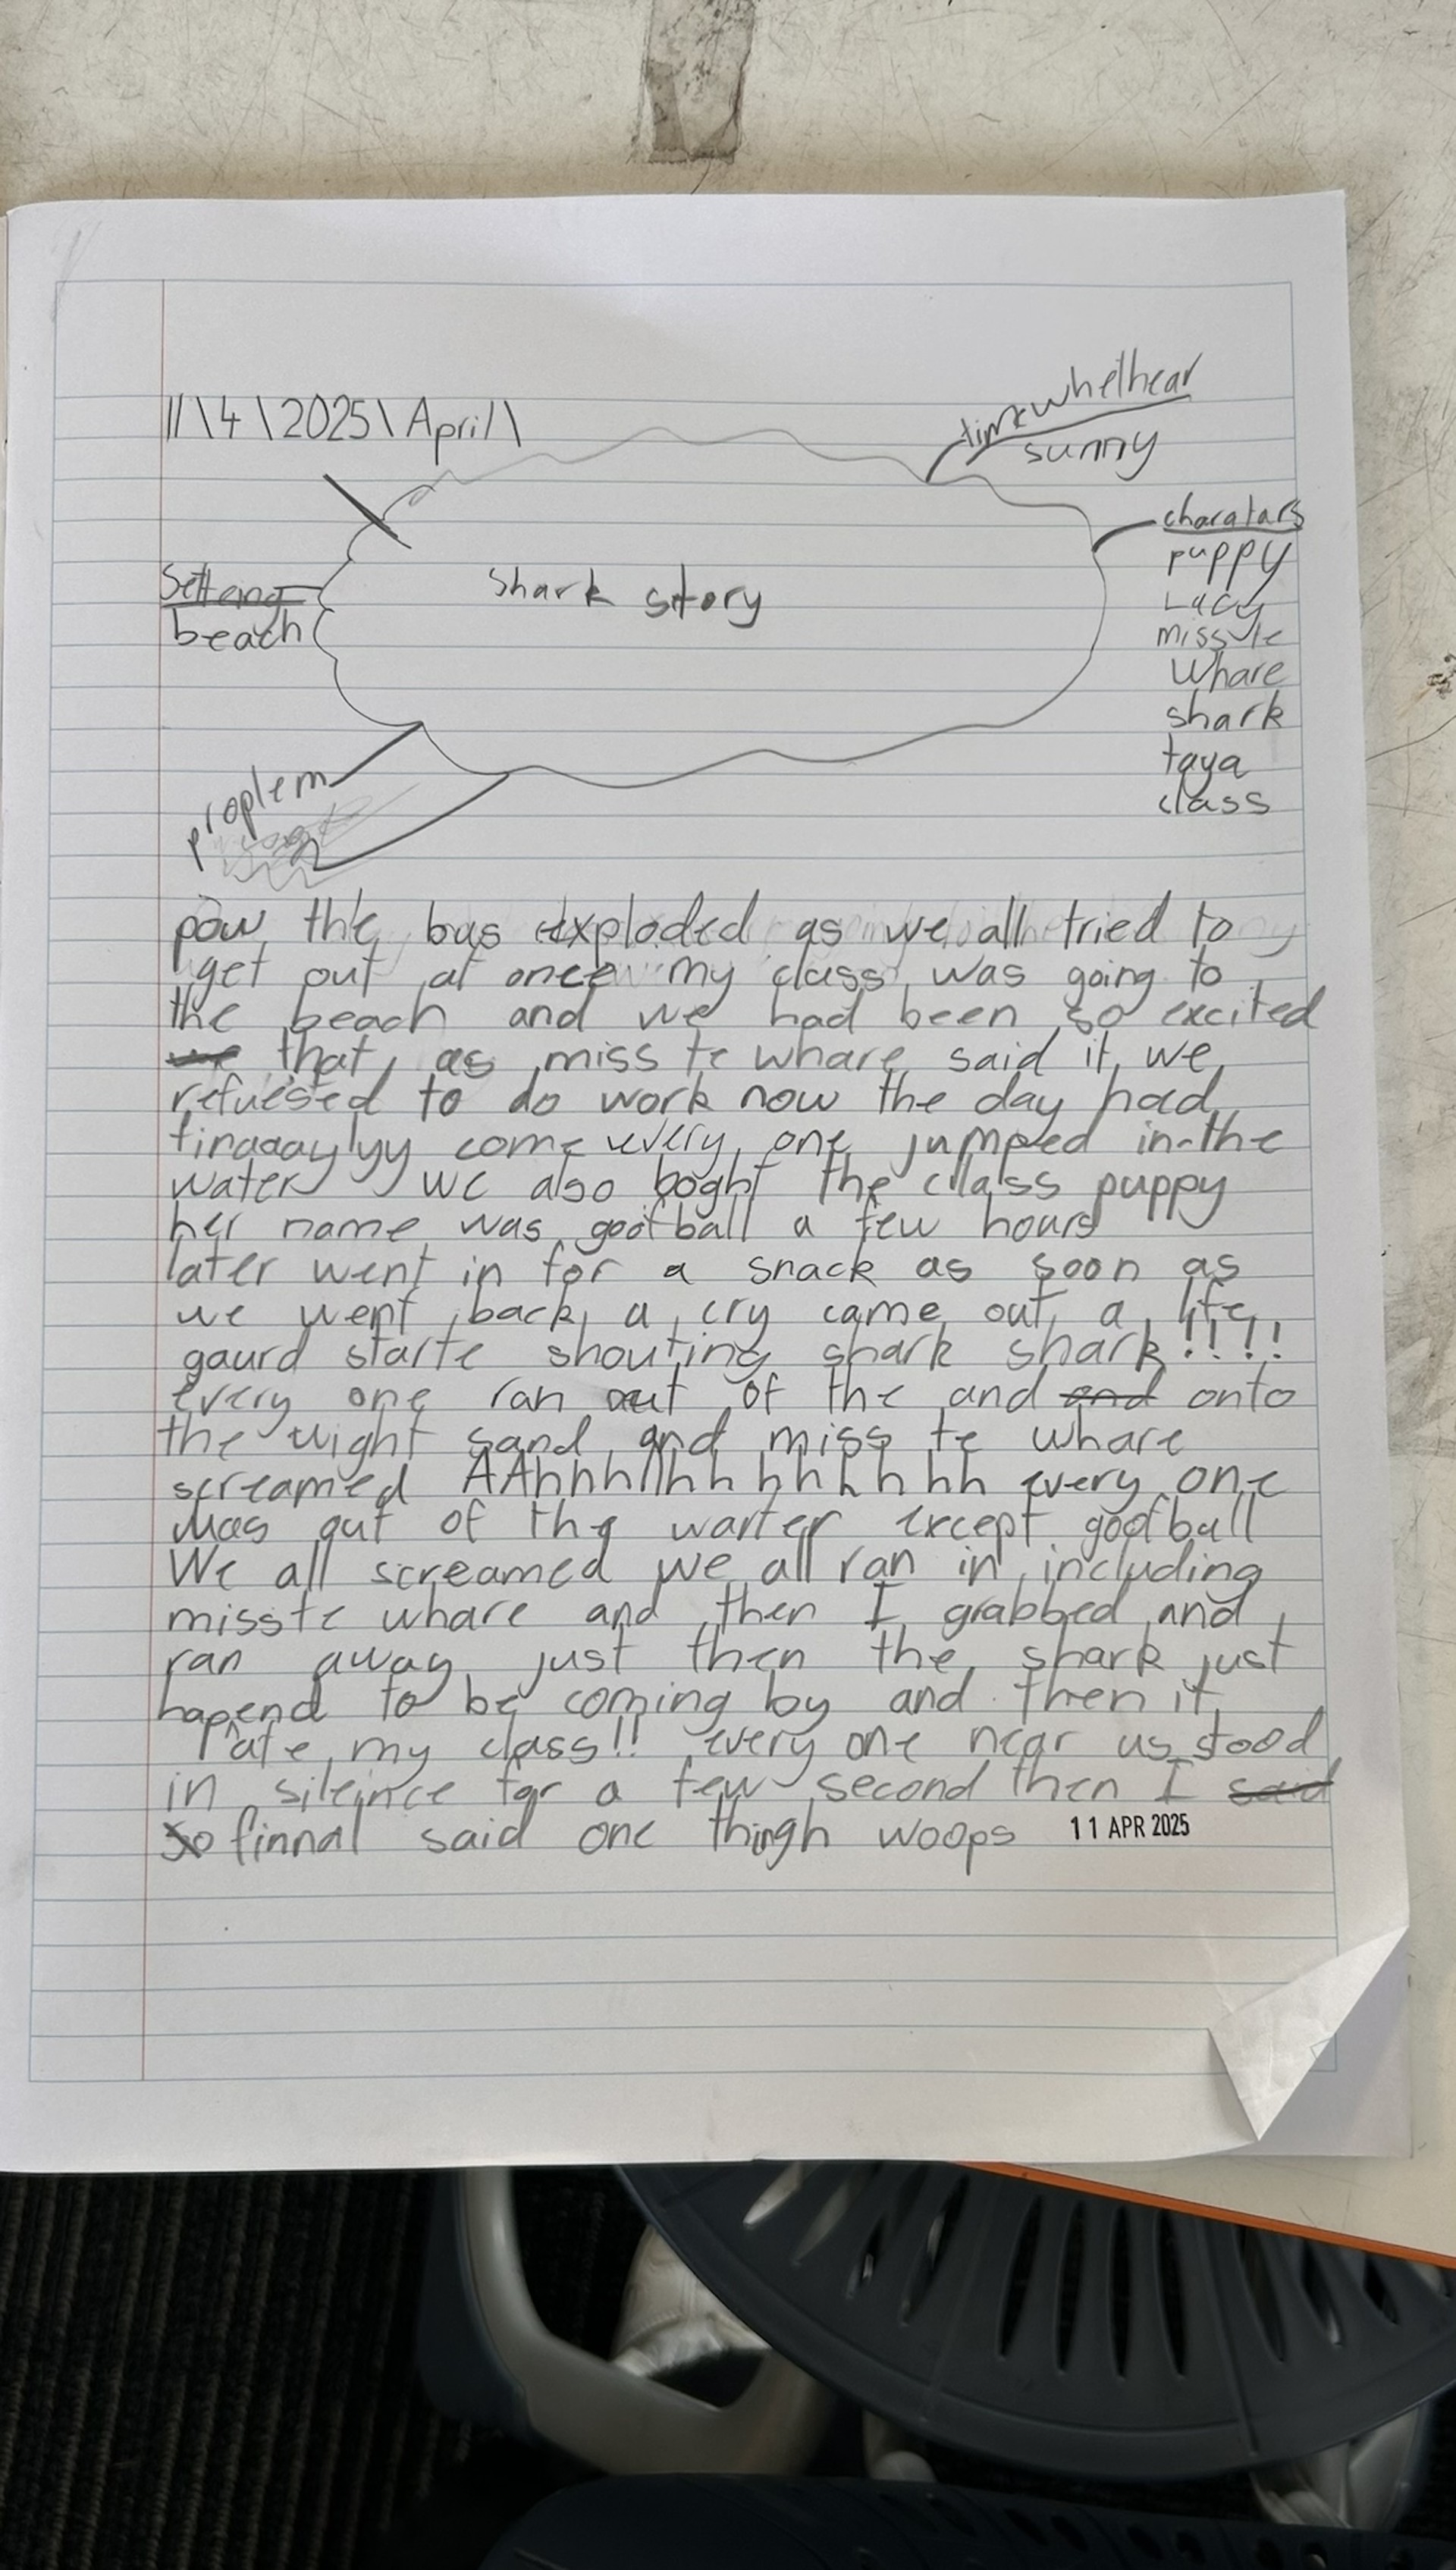 11\4\2025\April\
time whethear
sunny
charatars
puppy
Lacy
miss te
Whare
shark
taya
class
Setteing
beach
Shark story
proplem
pow the bus exploded as we all tried to
get out at once my class was going to
the beach and we had been so excited
we that as miss te whare said it we
refuesed to do work now the day had
finaaaylyy come every one jumped in the
water we also boght the class puppy
her name was goofball a few hours
later went in for a snack as soon as
we went back a cry came out a life
gaurd starte shouting shark shark!!!!
every one ran out of the and and onto
the sand and miss te whare
screamed AAhhhhhhhhhhhh every one
was out of the warter except goofball
We all screamed we all ran in including
misste whare and then I grabbed and
ran away just then the shark just
hapend to be coming by and then it
ate my class!! every one near us stood
in sileince for a few second then I said
so finnal said one thingh woops
11 APR 2025